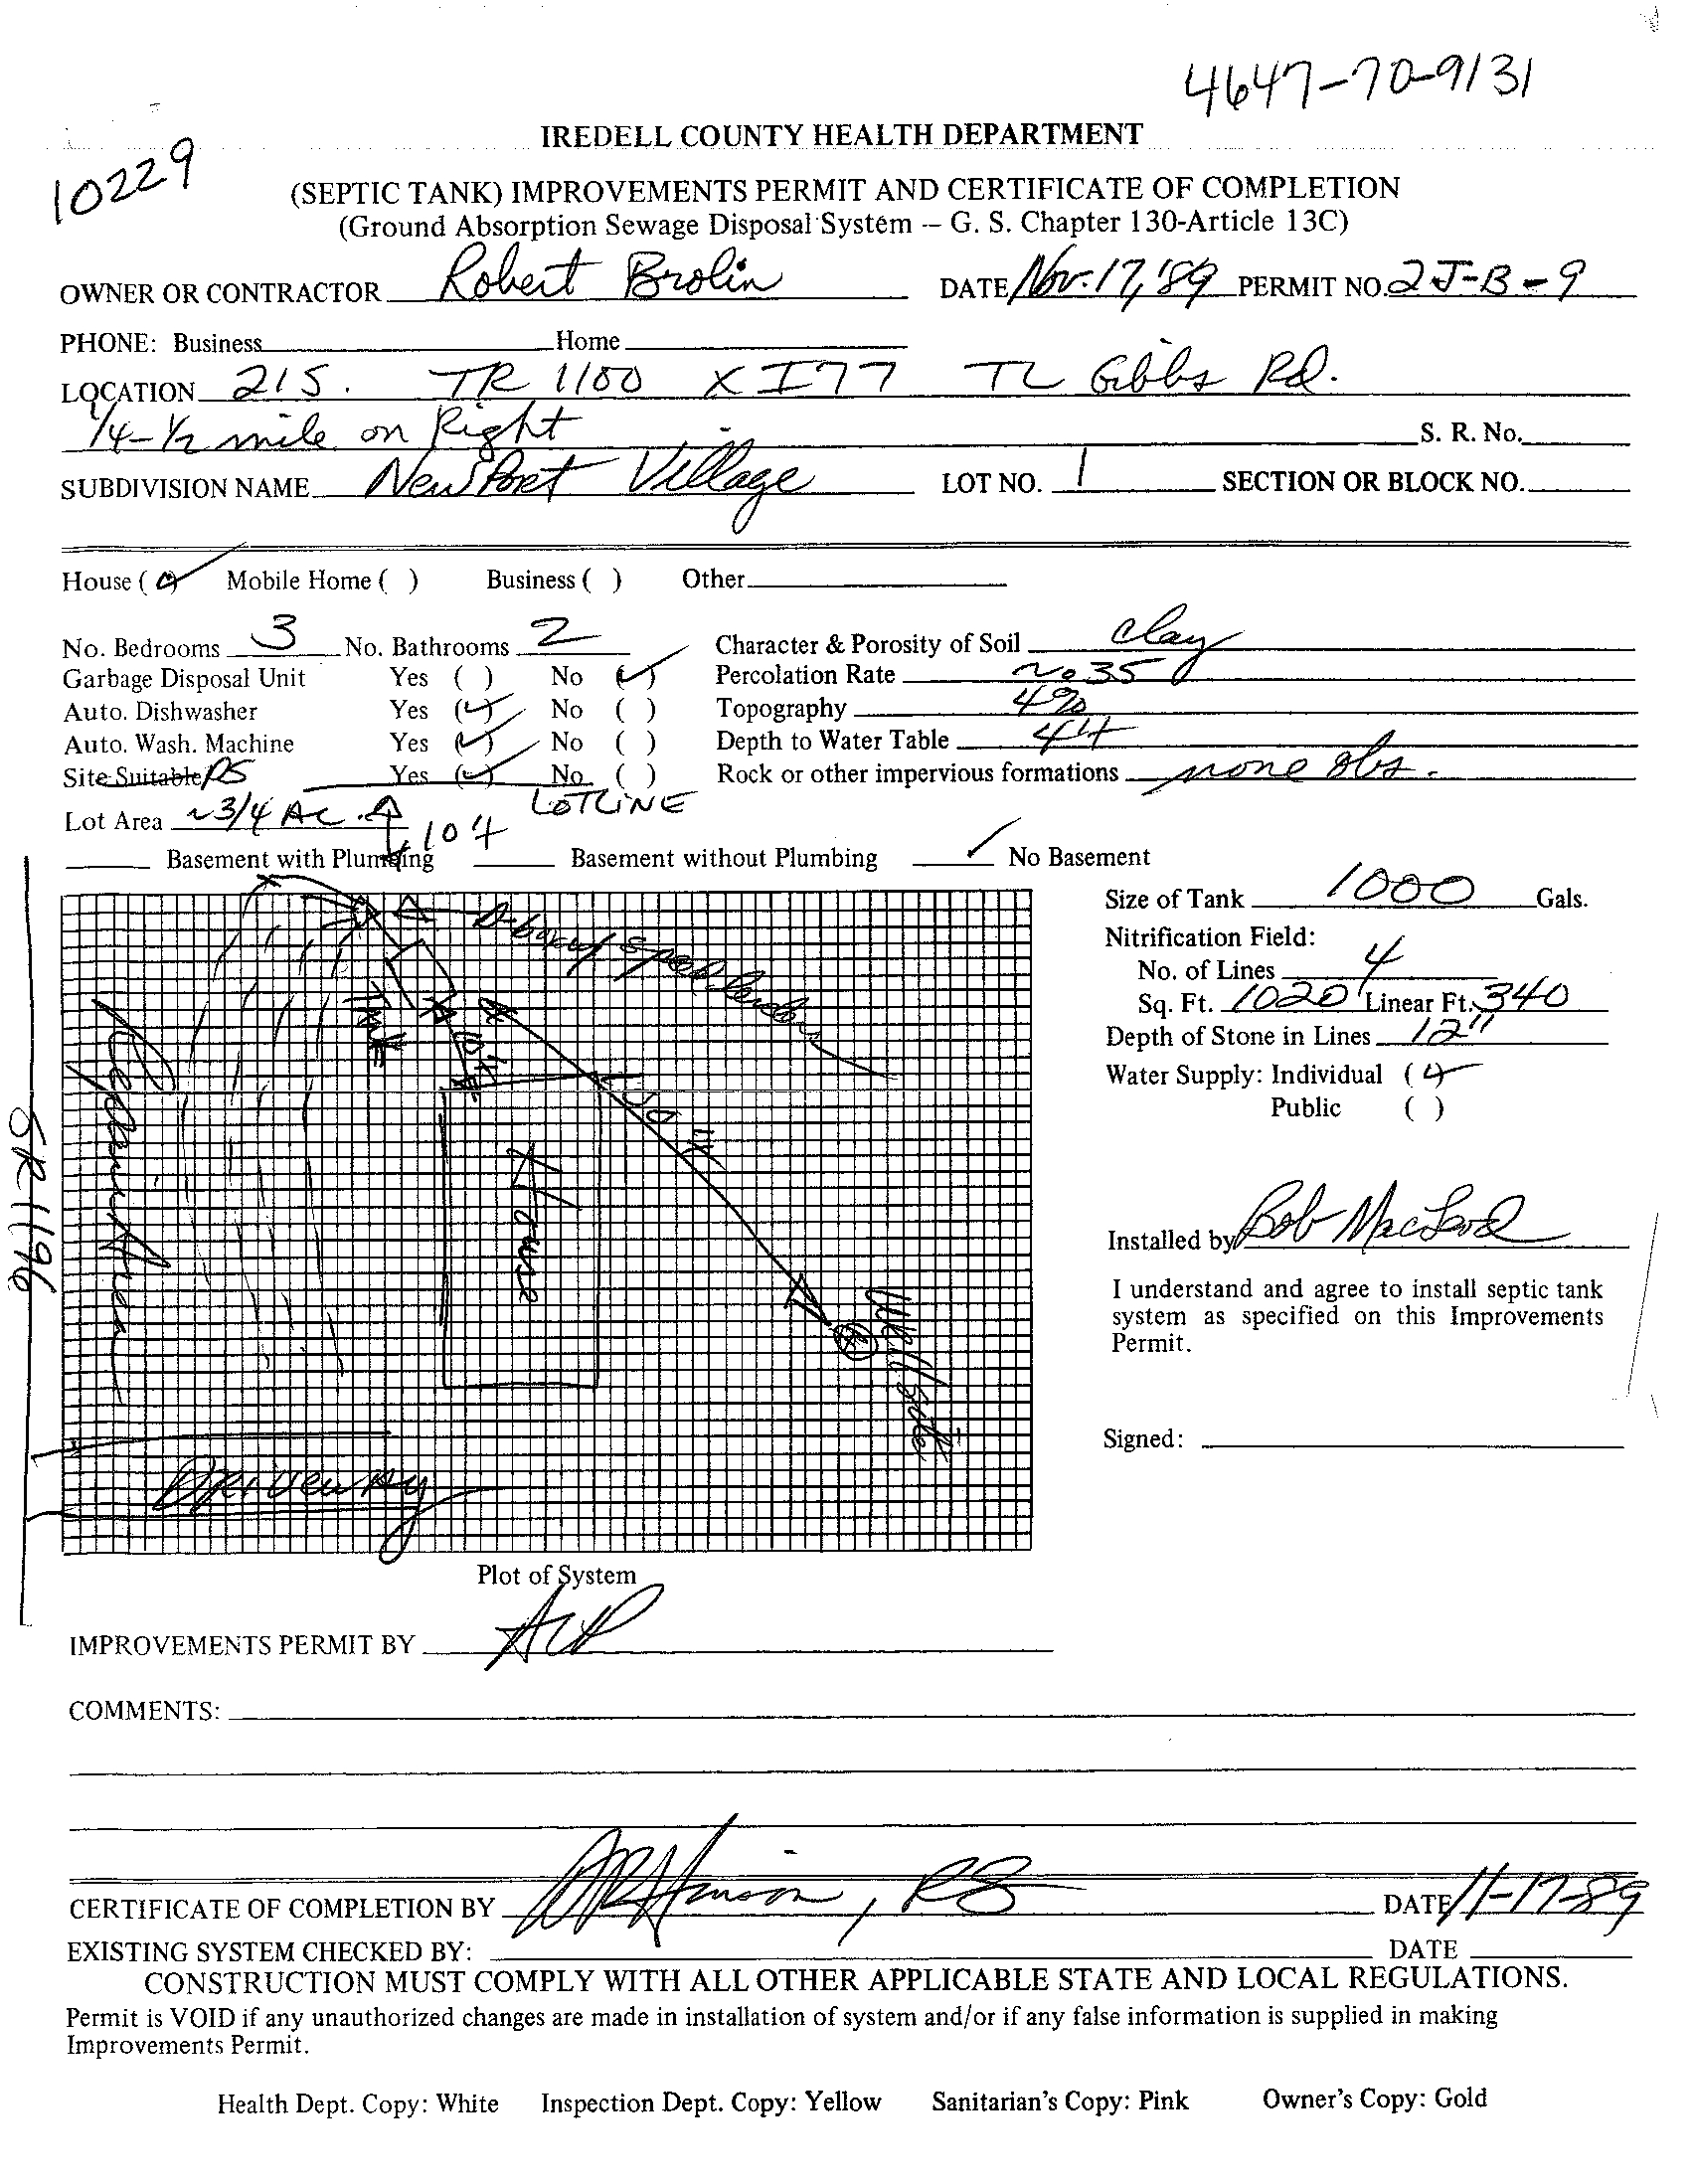 4647-70-9131
IREDELL COUNTY HEALTH DEPARTMENT
10229
(SEPTIC TANK) IMPROVEMENTS PERMIT AND CERTIFICATE OF COMPLETION
(Ground Absorption Sewage Disposal System -- G. S. Chapter 130-Article 13C)
OWNER OR CONTRACTOR Robert Brolin DATE Nov. 17, '89 PERMIT NO. 2J-B-9
PHONE: Business Home
LOCATION 21S. TR 1100 X I77 TL Gibbs Rd.
1/4-1/2 mile on Right S. R. No.
SUBDIVISION NAME Newport Village LOT NO. 1 SECTION OR BLOCK NO.
House ( ) Mobile Home ( ) Business ( ) Other
No. Bedrooms 3 No. Bathrooms 2 Character & Porosity of Soil clay
Garbage Disposal Unit Yes ( ) No (✓) Percolation Rate ~.35
Auto. Dishwasher Yes (✓) No ( ) Topography 4%
Auto. Wash. Machine Yes (✓) No ( ) Depth to Water Table 4ft
Site Suitable PS Yes (✓) No ( ) Rock or other impervious formations none obs.
Lot Area ~3/4 AC. LOTLINE
10ft
Basement with Plumbing Basement without Plumbing ✓ No Basement
Size of Tank 1000 Gals.
Nitrification Field:
No. of Lines 4
Sq. Ft. 1020 Linear Ft. 340
Depth of Stone in Lines 12"
Water Supply: Individual (✓)
Public ( )
D-box w/ speed levelers
Tank
10ft
House
Well Site
Repair Area
SR 1196
Driveway
Installed by Bob MacLeod
I understand and agree to install septic tank
system as specified on this Improvements
Permit.
Signed:
Plot of System
IMPROVEMENTS PERMIT BY
COMMENTS:
CERTIFICATE OF COMPLETION BY , RS DATE 11-17-89
EXISTING SYSTEM CHECKED BY: DATE
CONSTRUCTION MUST COMPLY WITH ALL OTHER APPLICABLE STATE AND LOCAL REGULATIONS.
Permit is VOID if any unauthorized changes are made in installation of system and/or if any false information is supplied in making
Improvements Permit.
Health Dept. Copy: White Inspection Dept. Copy: Yellow Sanitarian's Copy: Pink Owner's Copy: Gold